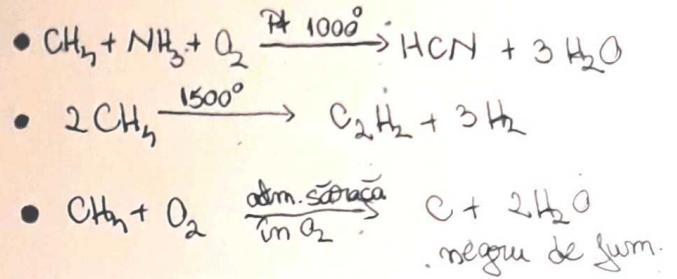 • CH₄ + NH₃ + O₂ Pt 1000° → HCN + 3 H₂O
• 2 CH₄ 1500° → C₂H₂ + 3 H₂
• CH₄ + O₂ atm. săracă în O₂ → C + 2 H₂O
negru de fum.